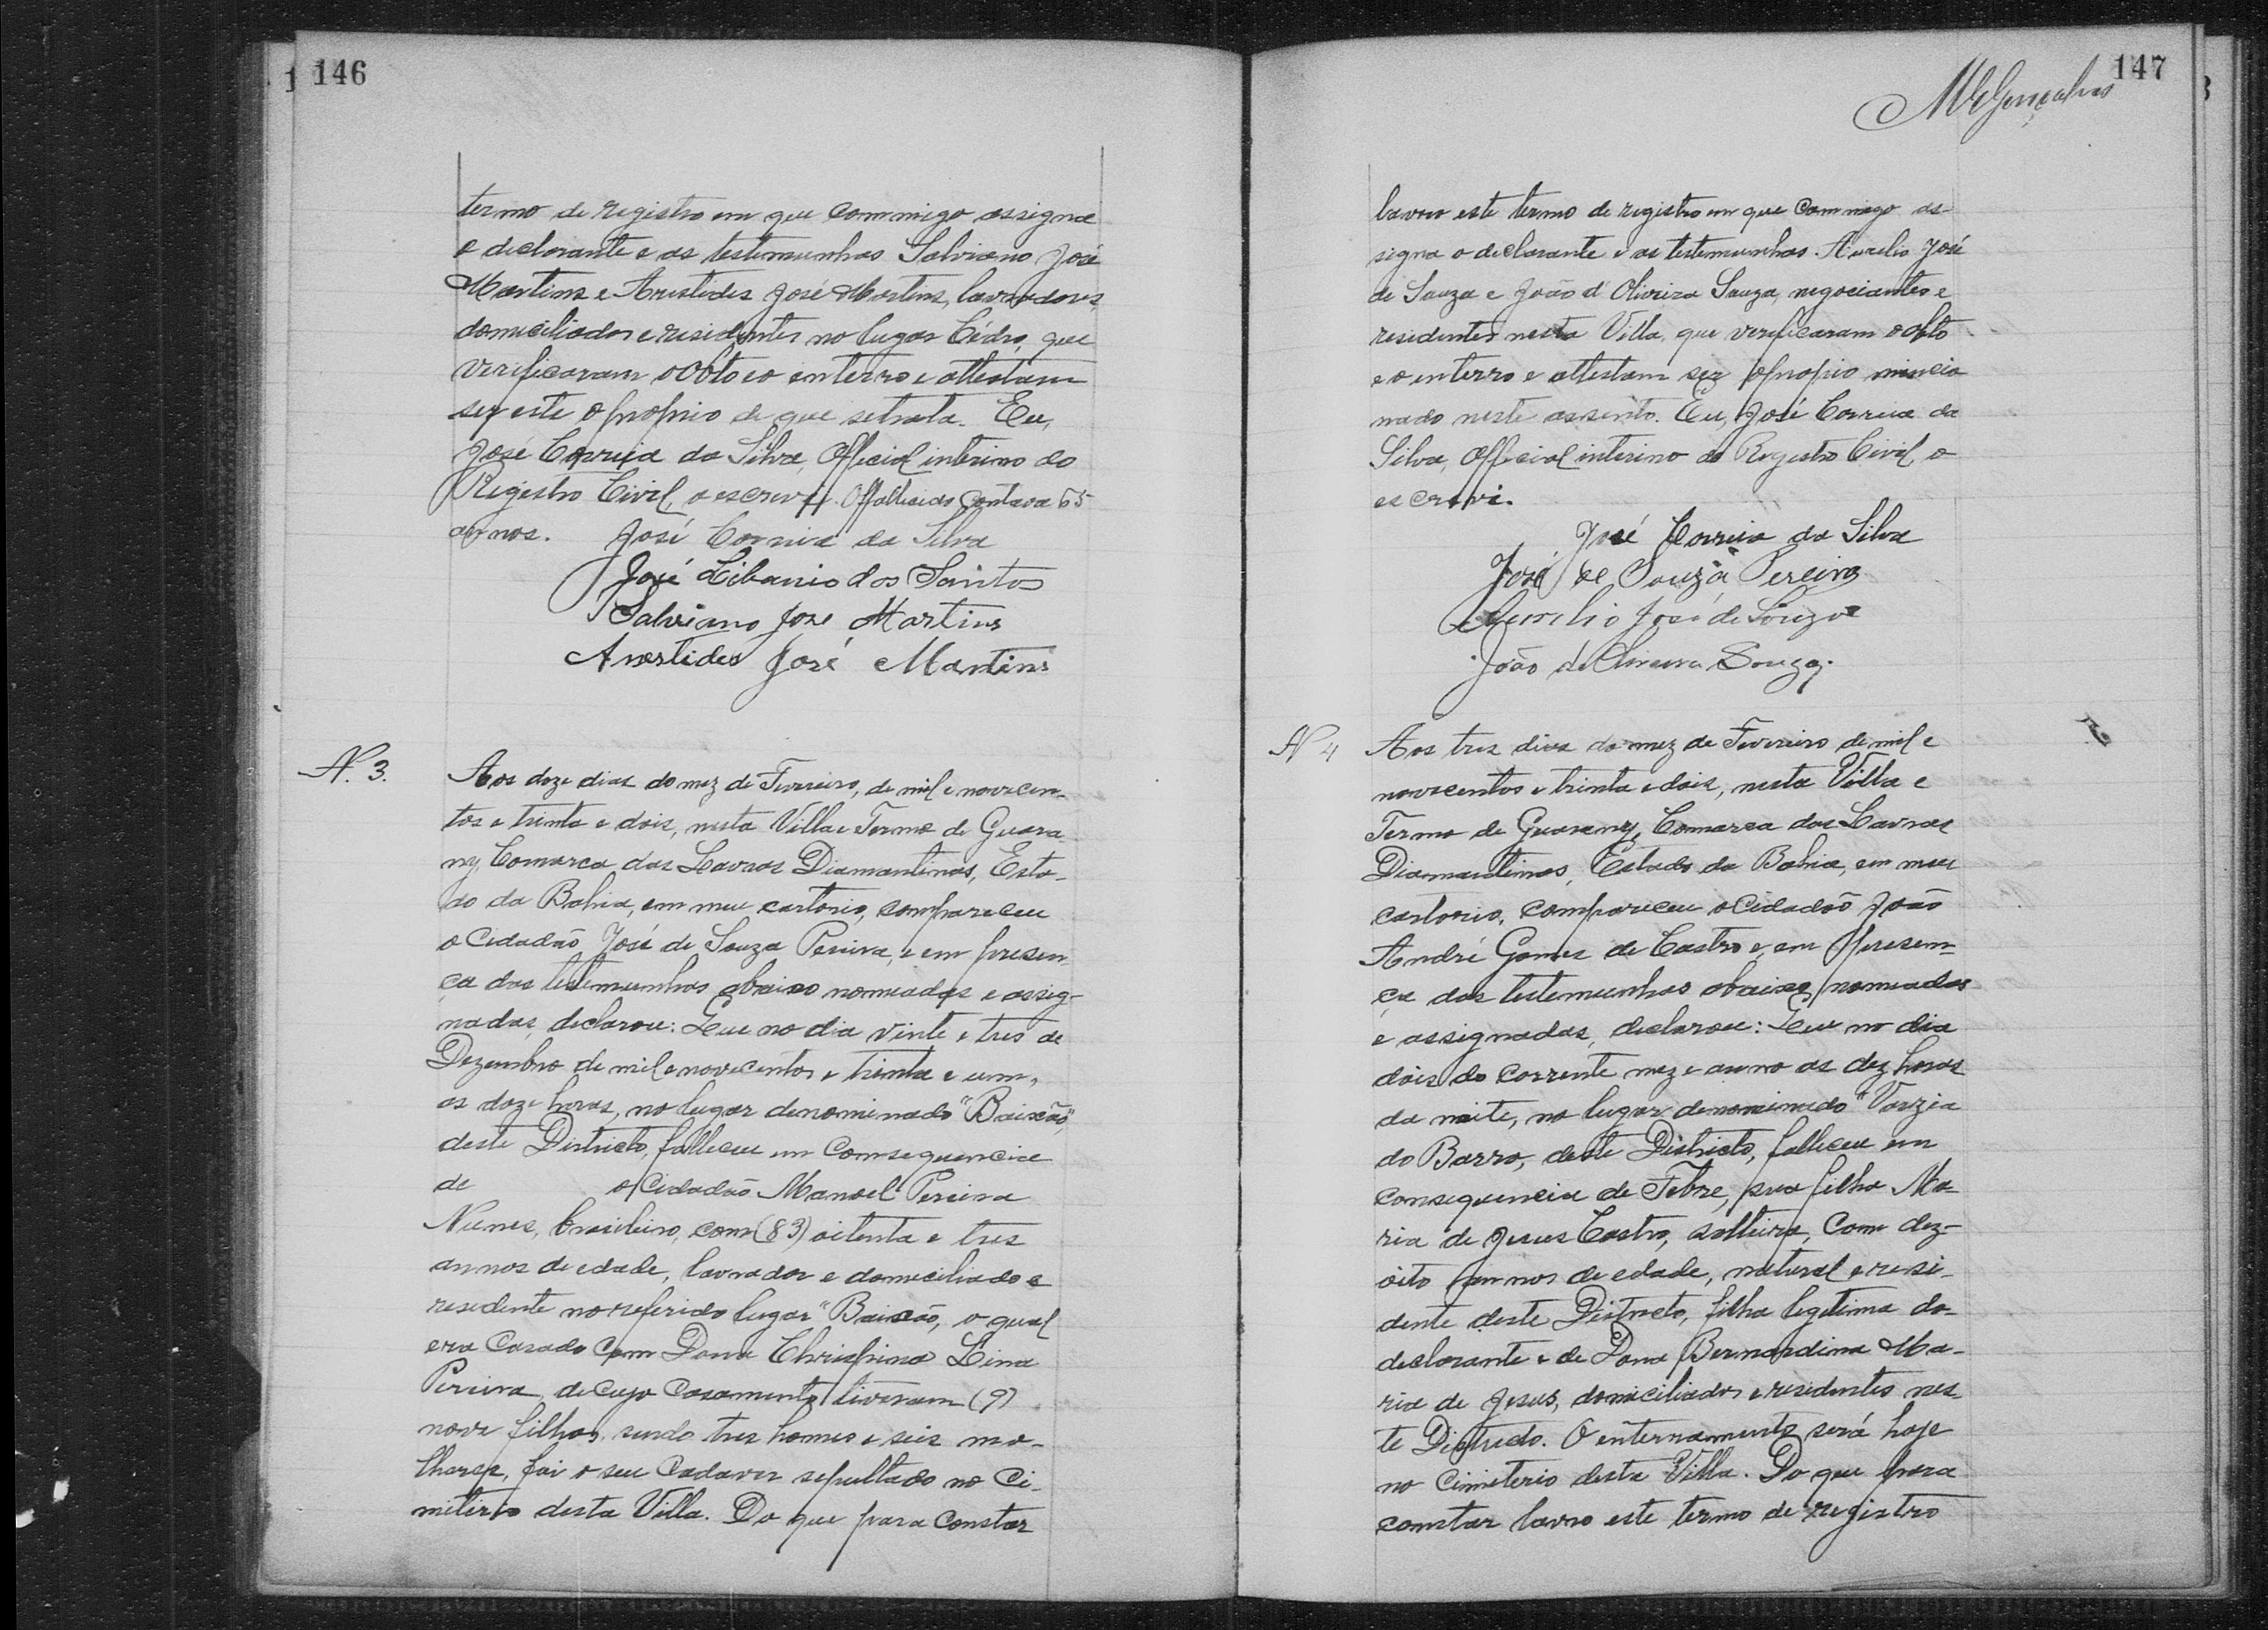 146
termo de registro em que commigo assigna
o declarante e as testemunhas Salviano José
Martins e Aristides José Martins, lavradores,
domiciliados e residentes no lugar Cédro, que
verificaram o obto e o enterro e attestam
ser este o proprio de que se trata. Eu,
José Correia da Silva, Official interino do
Registro Civil, o escrevi. O fallecido contava 65
annos. José Correia da Silva
José Libanio dos Santos
Salviano Jose Martins
Arestides José Martins
N. 3.
Aos doze dias do mez de Fevreiro, de mil e novecen-
tos e trinta e dois, nesta Villa e Termo de Guara-
ny, Comarca das Lavras Diamantinas, Esta-
do da Bahia, em meu cartorio, compareceu
o Cidadão José de Souza Pereira, e em presen-
ça das testemunhas abaixo nomeadas e assig-
nadas, declarou: Que no dia vinte e tres de
Dezembro de mil e novecentos e trinta e um,
as doze horas, no lugar denominado "Baixão",
deste Districto, falleceu em comsequencia
de o Cidadão Manoel Pereira
Nunes, brasileiro, com (83) oitenta e tres
annos de edade, lavrador e domiciliado e
residente no referido lugar "Baixão, o qual
era casado com Dona Chrispina Lina
Pereira, de cujo casamento tiveram (9)
nove filhos, sendo tres homes e seis mo-
lheres, foi o seu cadaver sepultado no Ci-
miterio desta Villa. Do que para constar
147
MEGonçalves
lavro este termo de registro em que commigo as-
signa o declarante e as testemunhas. Aurelio José
de Souza e João d'Oliveira Souza, negociantes e
residentes nesta Villa, que verificaram o obto
e o enterro e attestam ser o proprio mencio
nado neste assento. Eu, José Correia da
Silva, Official interino do Registro Civil, o
escrevi.
José Correia da Silva
José de Souza Pereira
Aurelio José de Souza
João d'Oliveira Souza.
N 4
Aos tres dias do mez de Fevereiro de mil e
novecentos e trinta e dois, nesta Villa e
Termo de Guarany, Comarca das Lavras
Diamantinas, Estado da Bahia, em meu
cartorio, compareceu o Cidadão João
André Gomes de Castro e, em presem-
ça das testemunhas abaixo nomeadas
e assignadas, declarou: Que no dia
dois do corrente mez e anno as dez horas
da noite, no lugar denominado "Varzia
do Barro, deste Districto, falleceu em
consequencia de Febre, sua filha Ma-
ria de Jesus Castro, solteira, com dez-
oito annos de edade, natural e resi-
dente deste Districto, filha legitima do
declarante e de Dona Bernardina Ma-
ria de Jesus, domiciliados e residentes nes-
te Districto. O enterramento será hoje
no Cimiterio desta Villa. Do que para
constar lavro este termo de registro